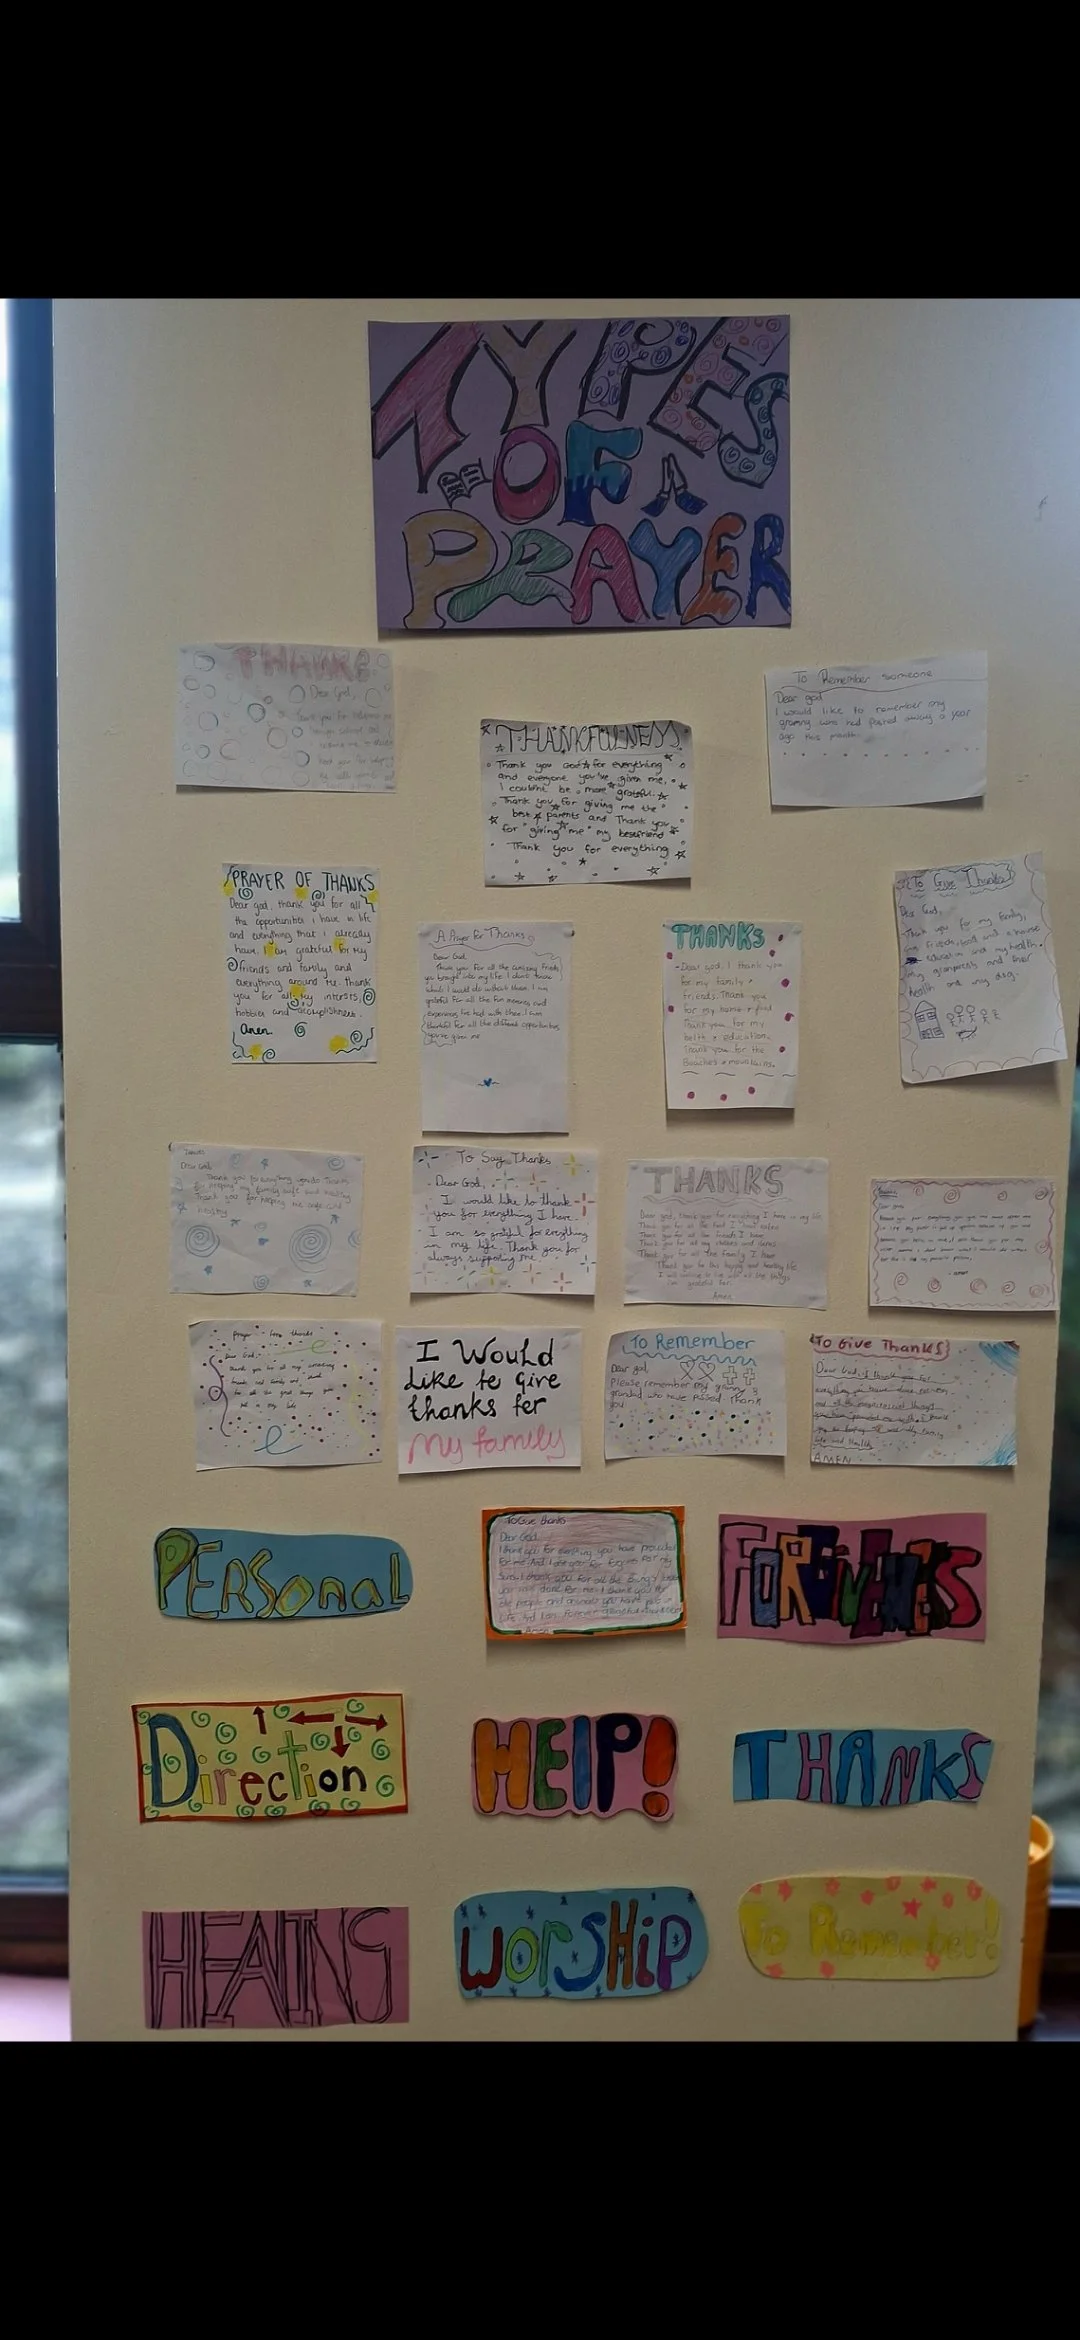 TYPES
OF
PRAYER
THANKS
Dear God,
To Remember someone
Dear god
I would like to remember my
granny who had passed away a year
ago this month.
THANKFULNESS
Thank you God for everything
and everyone you've given me,
I couldnt be more grateful.
Thank you for giving me the
best parents and Thank you
for giving me my bestfriend
Thank you for everything
PRAYER OF THANKS
Dear god, thank you for all
the opportunities i have in life
and everything that i already
have. I am grateful for my
friends and family and
everything around me. thank
you for all my intrests,
hobbies and accomplishments.
Amen.
A Prayer for Thanks
Dear God,
Thank you for all the amazing friends
you brought into my life. I don't know
what I would do without them. I am
grateful for all the fun memories and
experiences I've had with them. I am
thankful for all the different opportunities
you've given me
THANKS
Dear god, I thank you
for my family +
friends. Thank you
for my home + food
Thank you for my
helth + education.
Thank you for the
Beaches + mountains.
To Give Thanks
Dear God,
Thank you for my family,
my friends, food and a house
education and my health.
my granparents and their
health and my dog.
Thanks
Dear God,
Thank you for everything you do. Thank
for keeping my family safe and healthy
Thank you for helping me safe and
healthy
To Say Thanks
Dear God,
I would like to thank
you for everything I have.
I am so grateful for everything
in my life. Thank you for
always supporting me.
THANKS
Dear god, thank you for everything I have in my life
Thank you for all the food I have eaten
Thank you for all the friends I have
Thank you for all my clothes and shoes
Thank you for all the family I have
Thank you for this happy and healthy life
Amen
Amen
prayer for thanks
Dear God,
thank you for all my amazing
friends and family and
for all the great things you
put in my life
I Would
Like to Give
thanks for
My family
To Remember
Dear god,
Please remember my granny &
grandad who have passed Thank
you
To Give Thanks
Dear God, I thank you for
AMEN
PERSonaL
To Give thanks
Dear God,
I thank you for everything you have provided
for me. And I ask you for forgive for my
Sins. I thank you for all the things
you have done for me. I thank you for
the people and animals you have put in
Amen
FORGIVENESS
Direction
HElP!
THANKS
HEALING
WorSHiP
To Remember!